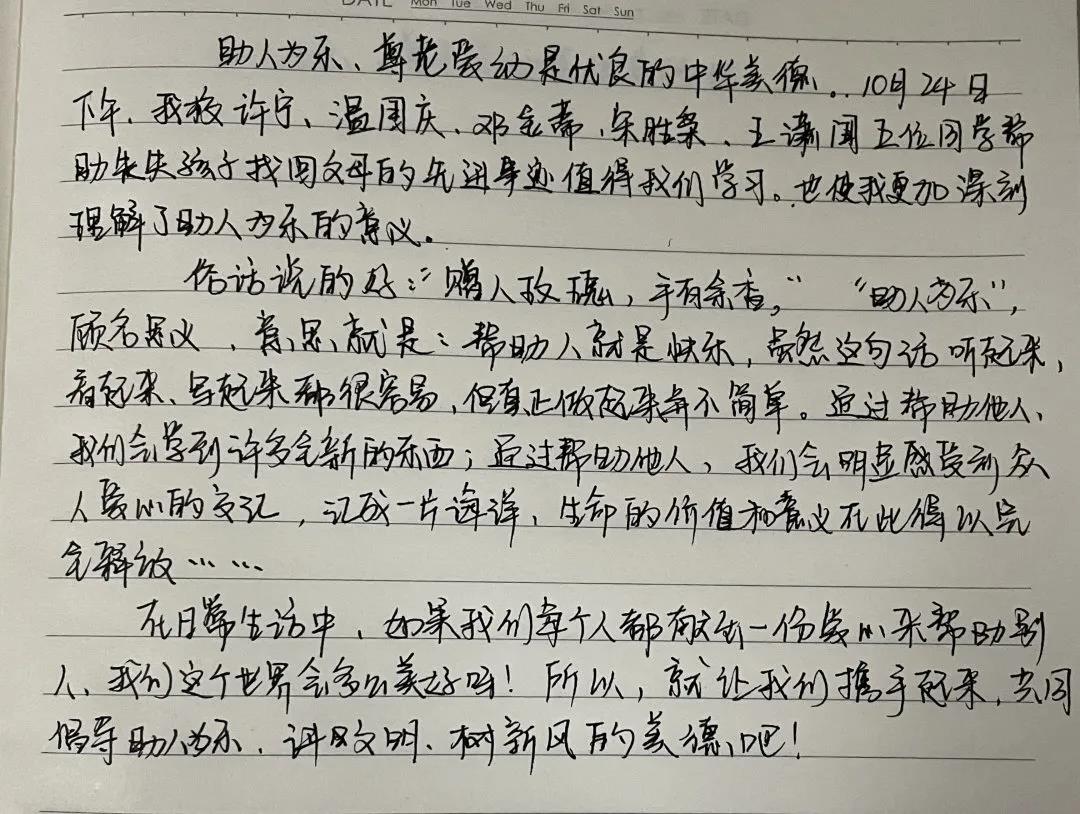 DATE Mon Tue Wed Thu Fri Sat Sun
助人为乐、尊老爱幼是优良的中华美德。10月24日
下午,我校许宁、温国庆、邓金蒂、宋胜桑、王潇闻五位同学帮
助走失孩子找回父母的先进事迹值得我们学习。也使我更加深刻
理解了助人为乐的意义。
俗话说的好:“赠人玫瑰,手有余香。” “助人为乐”,
顾名思义,意思就是:帮助人就是快乐,虽然这句话听起来,
看起来、写起来都很容易,但真正做起来并不简单。通过帮助他人、
我们会学到许多全新的东西;通过帮助他人,我们会明显感受到众
人爱心的交汇,汇成一片海洋,生命的价值和意义在此得以完
全释放……
在日常生活中,如果我们每个人都献出一份爱心来帮助别
人、我们这个世界会多么美好啊!所以,就让我们携手起来,共同
倡导助人为乐、讲文明、树新风的美德吧!